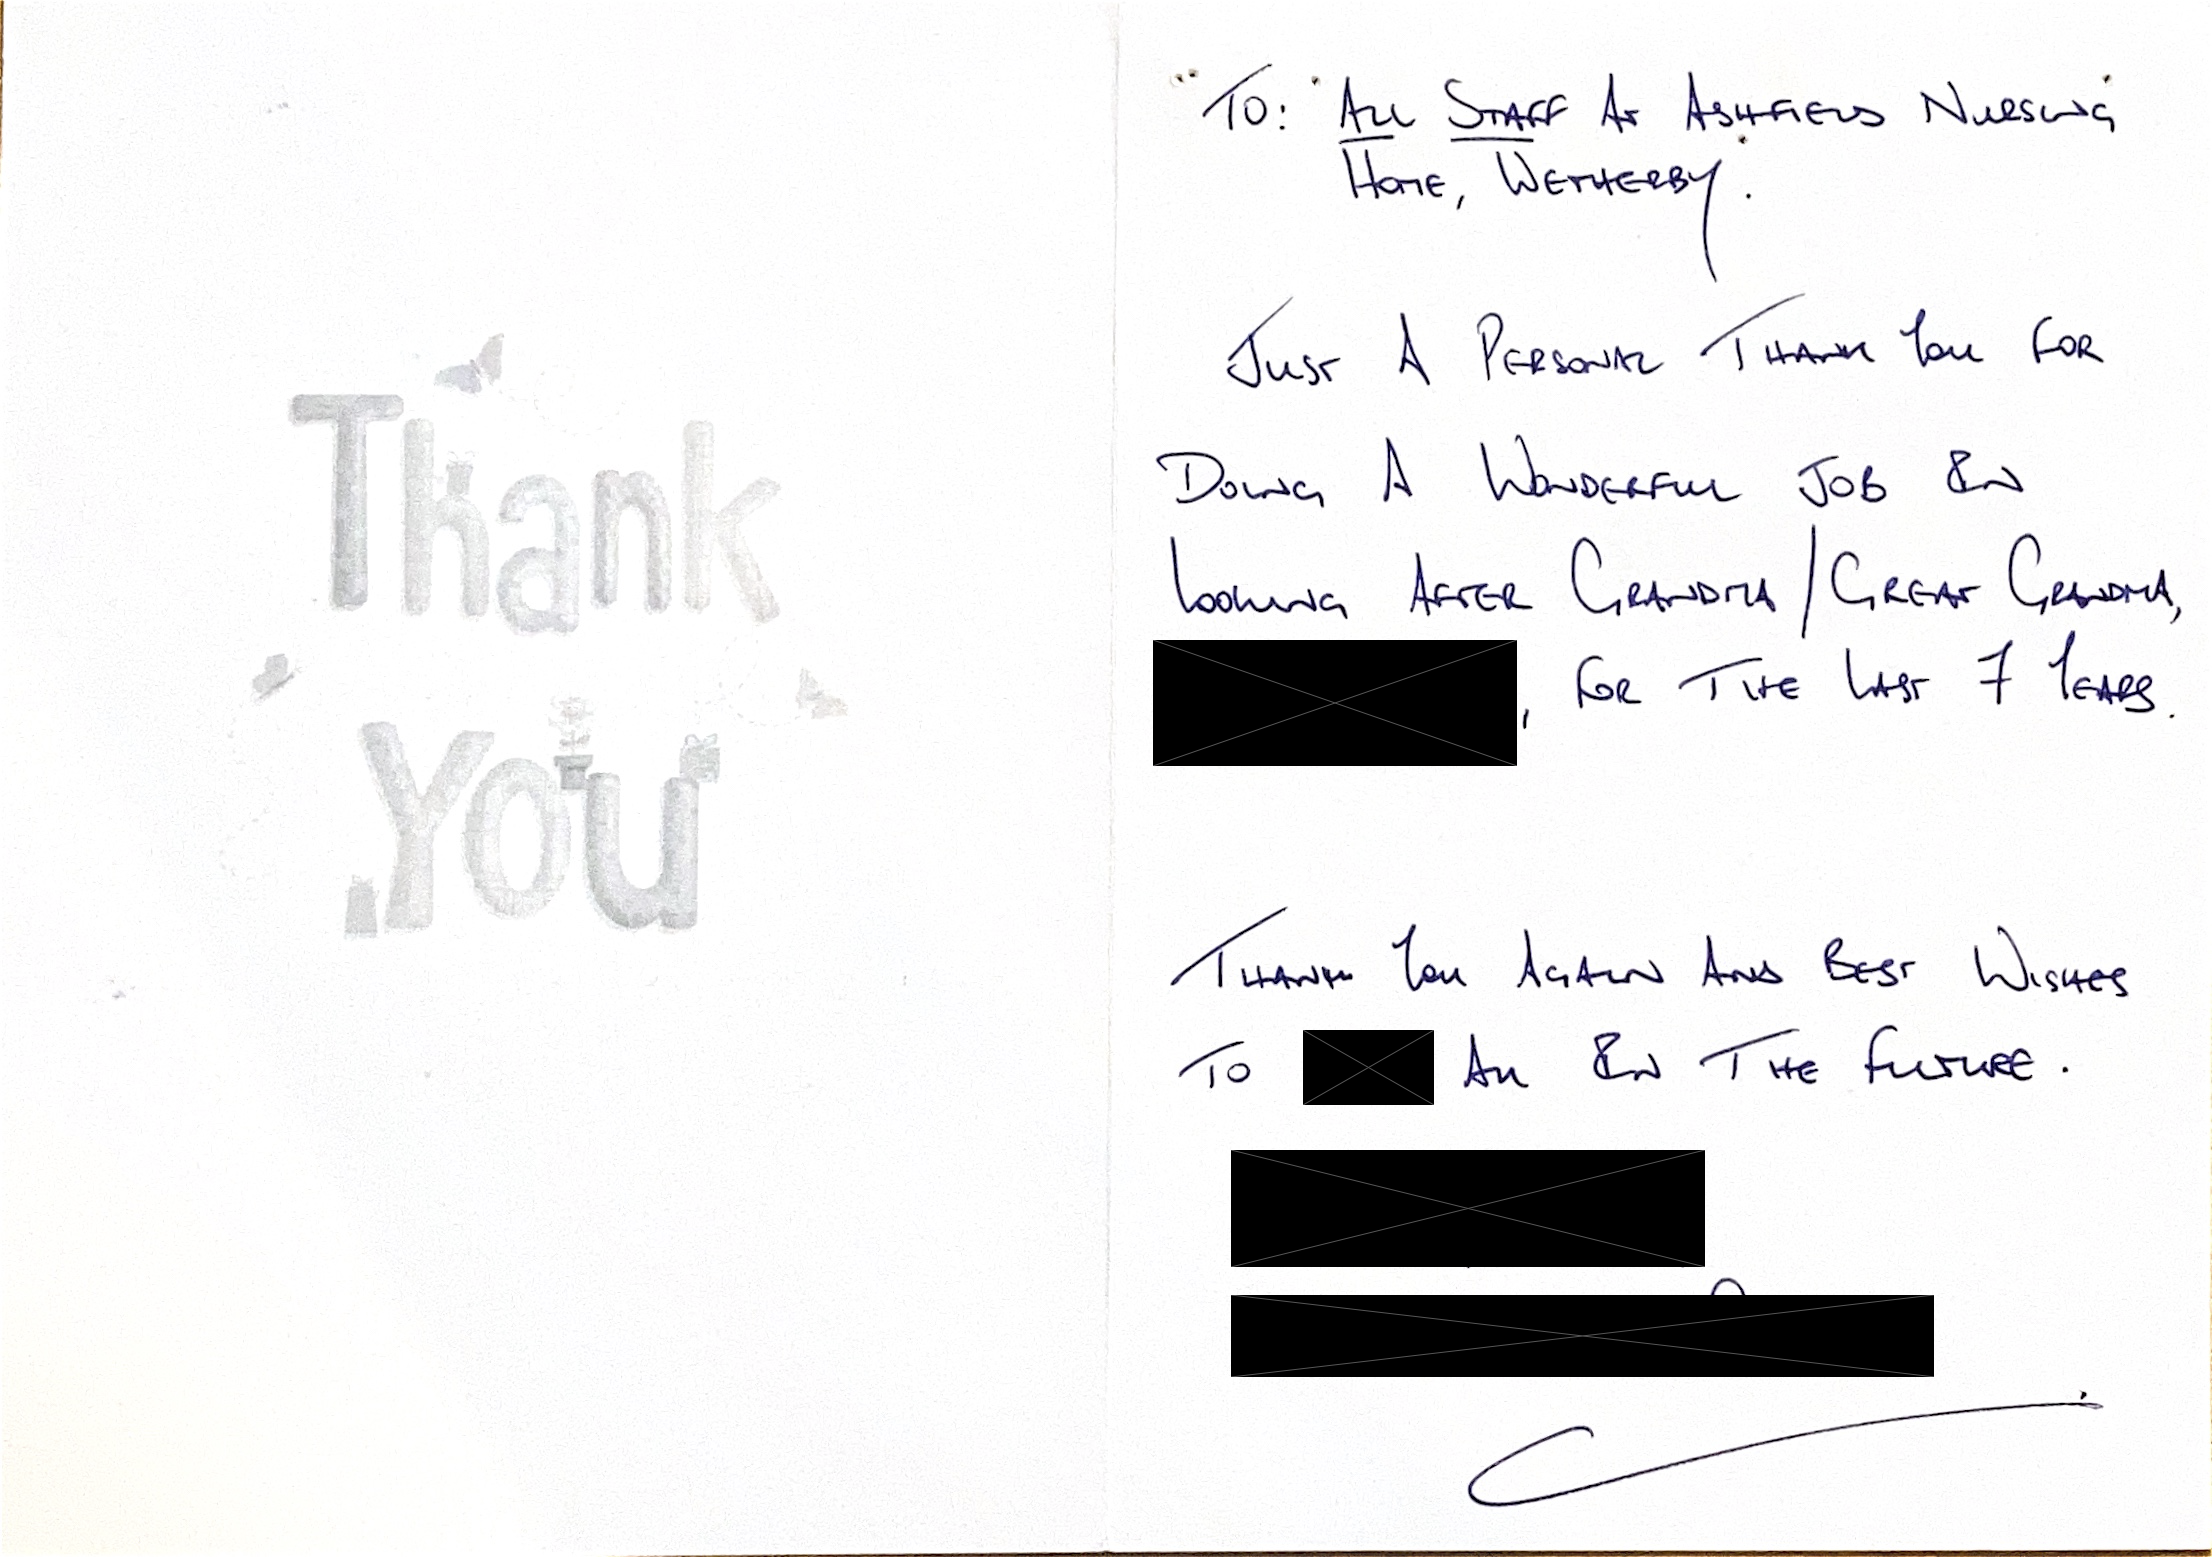 Thank
You
To: All Staff At Ashfield Nursing
Home, Wetherby.
Just A Personal Thank You For
Doing A Wonderful Job In
Looking After Grandma/Great Grandma,
, For The Last 7 Years.
Thank You Again And Best Wishes
To All In The Future.